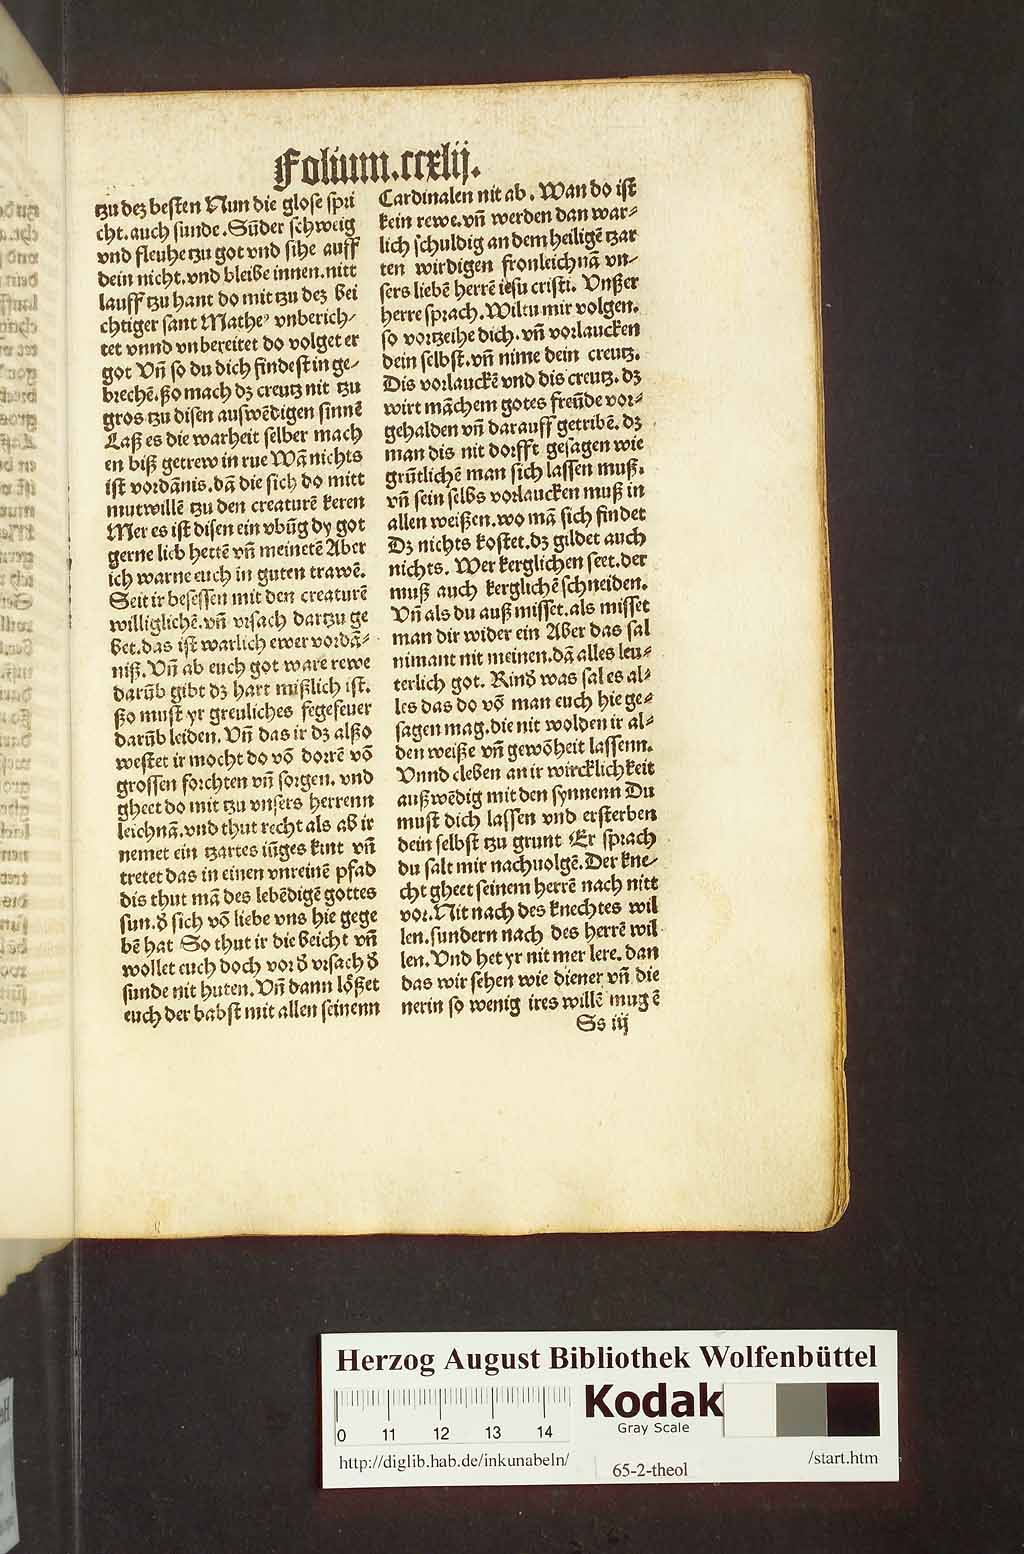 Folium.ccxlij.
tzu dez besten Nun die glose spri
cht.auch sunde.Sūder schweig
vnd fleuhe tzu got vnd sihe auff
dein nicht.vnd bleibe innen.nitt
lauff tzu hant do mit tzu dez bei
chtiger sant Mathe⁹ vnberich⸗
tet vnnd vnbereitet do volget er
got Vn̄ so du dich findest in ge⸗
brechē.ßo mach dz creutz nit tzu
gros tzu disen auswēdigen sinnē
Laß es die warheit selber mach
en biß getrew in rue Wā nichts
ist vordānis.dā die sich do mitt
mutwillē tzu den creaturē keren
Mer es ist disen ein vbūg dy got
gerne lieb hettē vn̄ meinetē Aber
ich warne euch in guten trawē.
Seit ir besessen mit den creaturē
williglichē.vn̄ vrsach dartzu ge
bet.das ist warlich ewer vordā⸗
niß.Vn̄ ab euch got ware rewe
darūb gibt dz hart mißlich ist.
ßo must yr greuliches fegefeuer
darūb leiden. Vn̄ das ir dz alßo
westet ir mocht do vō dorrē vō
grossen forchten vn̄ sorgen. vnd
gheet do mit tzu vnsers herrenn
leichnā.vnd thut recht als ab ir
nemet ein tzartes iūges kint vn̄
tretet das in einen vnreinē pfad
dis thut mā des lebēdigē gottes
sun.d̕ sich vō liebe vns hie gege
bē hat So thut ir die beicht vn̄
wollet euch doch vor d̕ vrsach d̕
sunde nit huten. Vn̄ dann lößet
euch der babst mit allen seinenn
Cardinalen nit ab. Wan do ist
kein rewe.vn̄ werden dan war⸗
lich schuldig an dem heiligē tzar
ten wirdigen fronleichnā vn⸗
sers liebē herrē iesu cristi. Vnßer
herre sprach.Wiltu mir volgen.
so vortzeihe dich.vn̄ vorlaucken
dein selbst.vn̄ nime dein creutz.
Dis vorlauckē vnd dis creutz.dz
wirt māchem gotes freūde vor⸗
gehalden vn̄ darauff getribē.dz
man dis nit dorfft gesagen wie
grūtlichē man sich lassen muß.
vn̄ sein selbs vorlaucken muß in
allen weißen.wo mā sich findet
Dz nichts kostet.dz gildet auch
nichts. Wer kerglichen seet.der
muß auch kerglichē schneiden.
Vn̄ als du auß misset.als misset
man dir wider ein Aber das sal
nimant nit meinen.dā alles leu⸗
terlich got. Kind̕ was sal es al⸗
les das do vō man euch hie ge⸗
sagen mag.die nit wolden ir al⸗
den weiße vn̄ gewōheit lassenn.
Vnnd cleben an ir wircklichkeit
außwēdig mit den synnenn Du
must dich lassen vnd ersterben
dein selbst tzu grunt Er sprach
du salt mir nachuolgē.Der kne⸗
cht gheet seinem herrē nach nitt
vor.Nit nach des knechtes wil
len.sundern nach des herrē wil
len. Vnd het yr nit mer lere. dan
das wir sehen wie diener vn̄ die
nerin so wenig ires willē mugē
Ss iij
Herzog August Bibliothek Wolfenbüttel
Kodak
Gray Scale
0 11 12 13 14
http://diglib.hab.de/inkunabeln/
65-2-theol
/start.htm